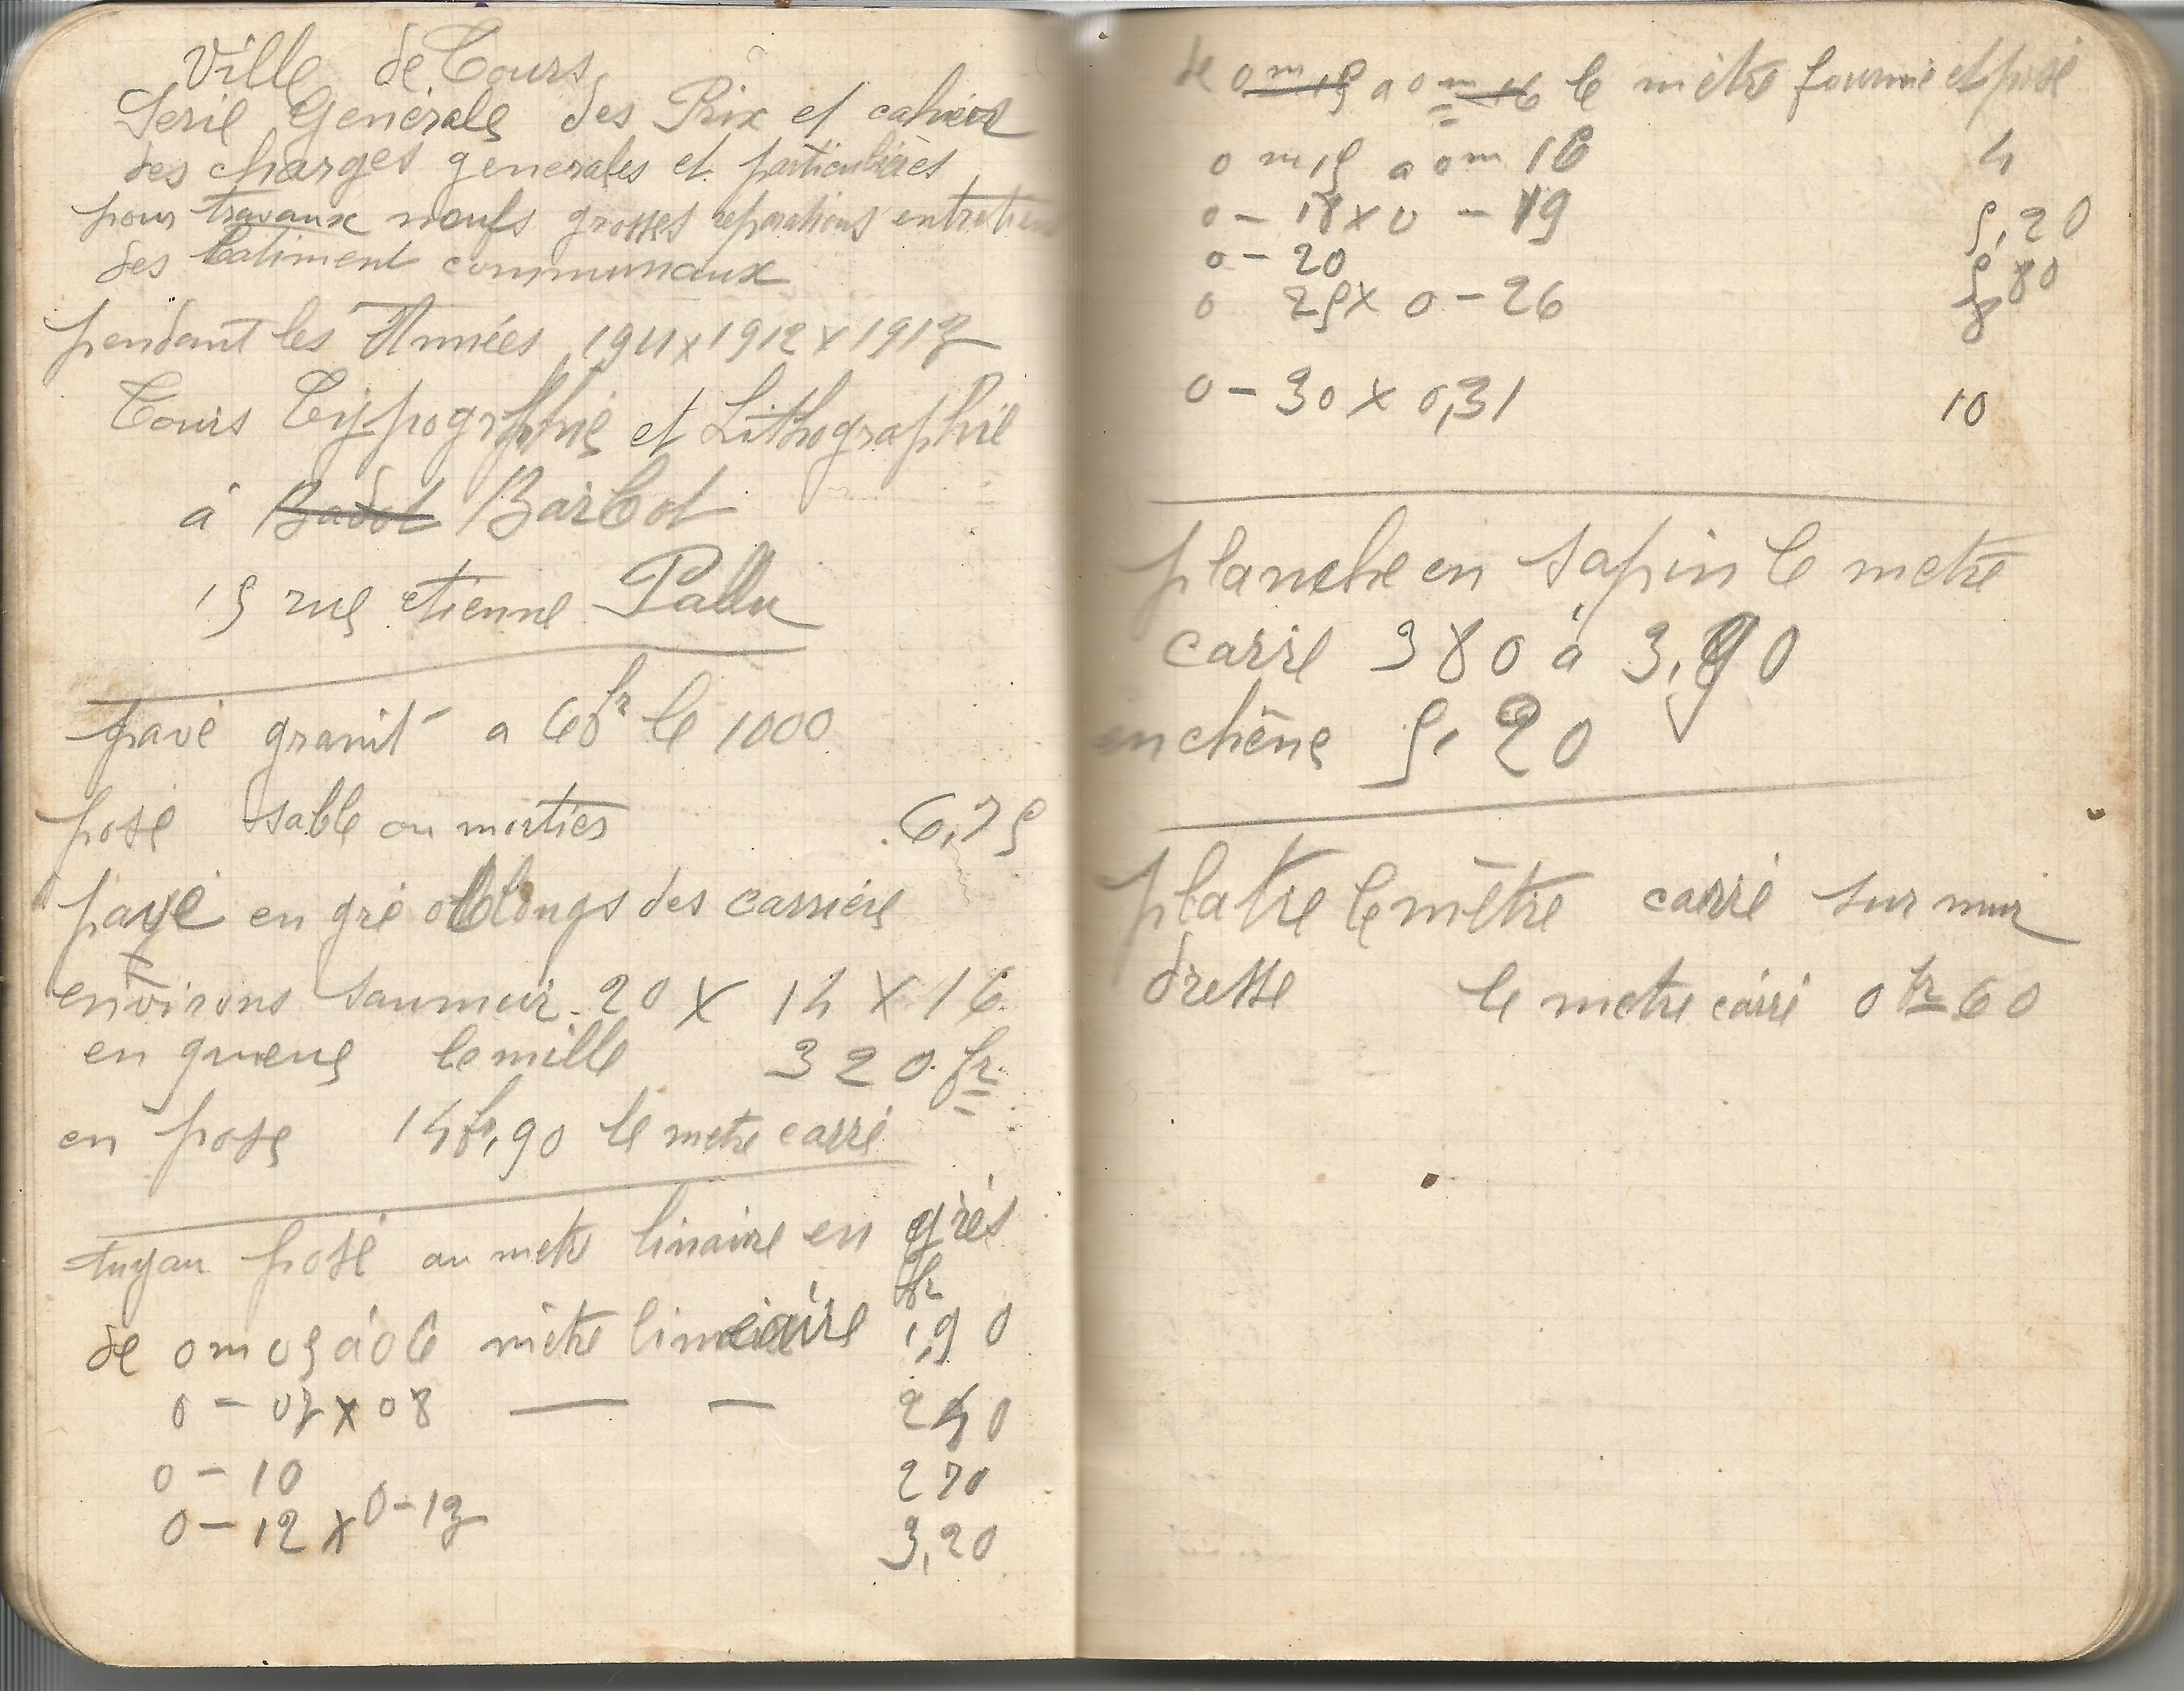 Ville de Tours
Serie Génerale des Prix et cahier
des charges generales et particulières
pour travaux neufs grosses reparations entretien
des batiment communaux
pendant les Années 1911 x 1912 x 1913
Tours Typographie et Lithographie
à Badot Barbot
15 rue etienne Pallu
pavé granit a 68fr le 1000
posé sable ou mortier 6,75
pavé en gré oblongs des carrière
environs saumur 20 x 14 x 16
en queue le mille 320 fr
en pose 14fr,90 le metre carré
tuyau posé au metre linaire en grès
fr
de 0m05 à 06 mètre lineaire 1,90
0 - 07 x 08 — — 240
0 - 10 270
0 - 12 x 0 - 13 3,20
de 0m15 a 0m 16 le mètre fournie et posé
0m15 a 0m 16 4
0 - 18 x 0 - 19 5,20
0 - 20 5,80
0 25 x 0 - 26 8
0 - 30 x 0,31 10
planche en sapin le metre
carré 380 à 3,90
en chêne 5,20
platre le mètre carré sur mur
dresse le metre carré 0 fr 60